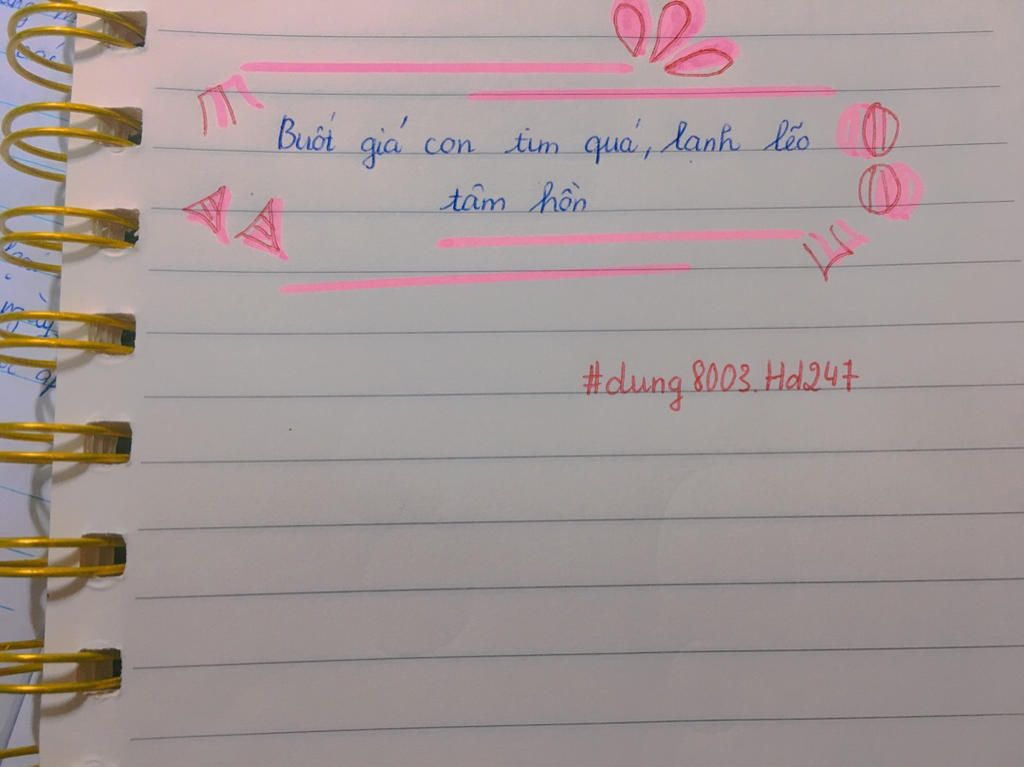 Buốt giá con tim quá, lạnh lẽo
tâm hồn
#dung8003.Hd247